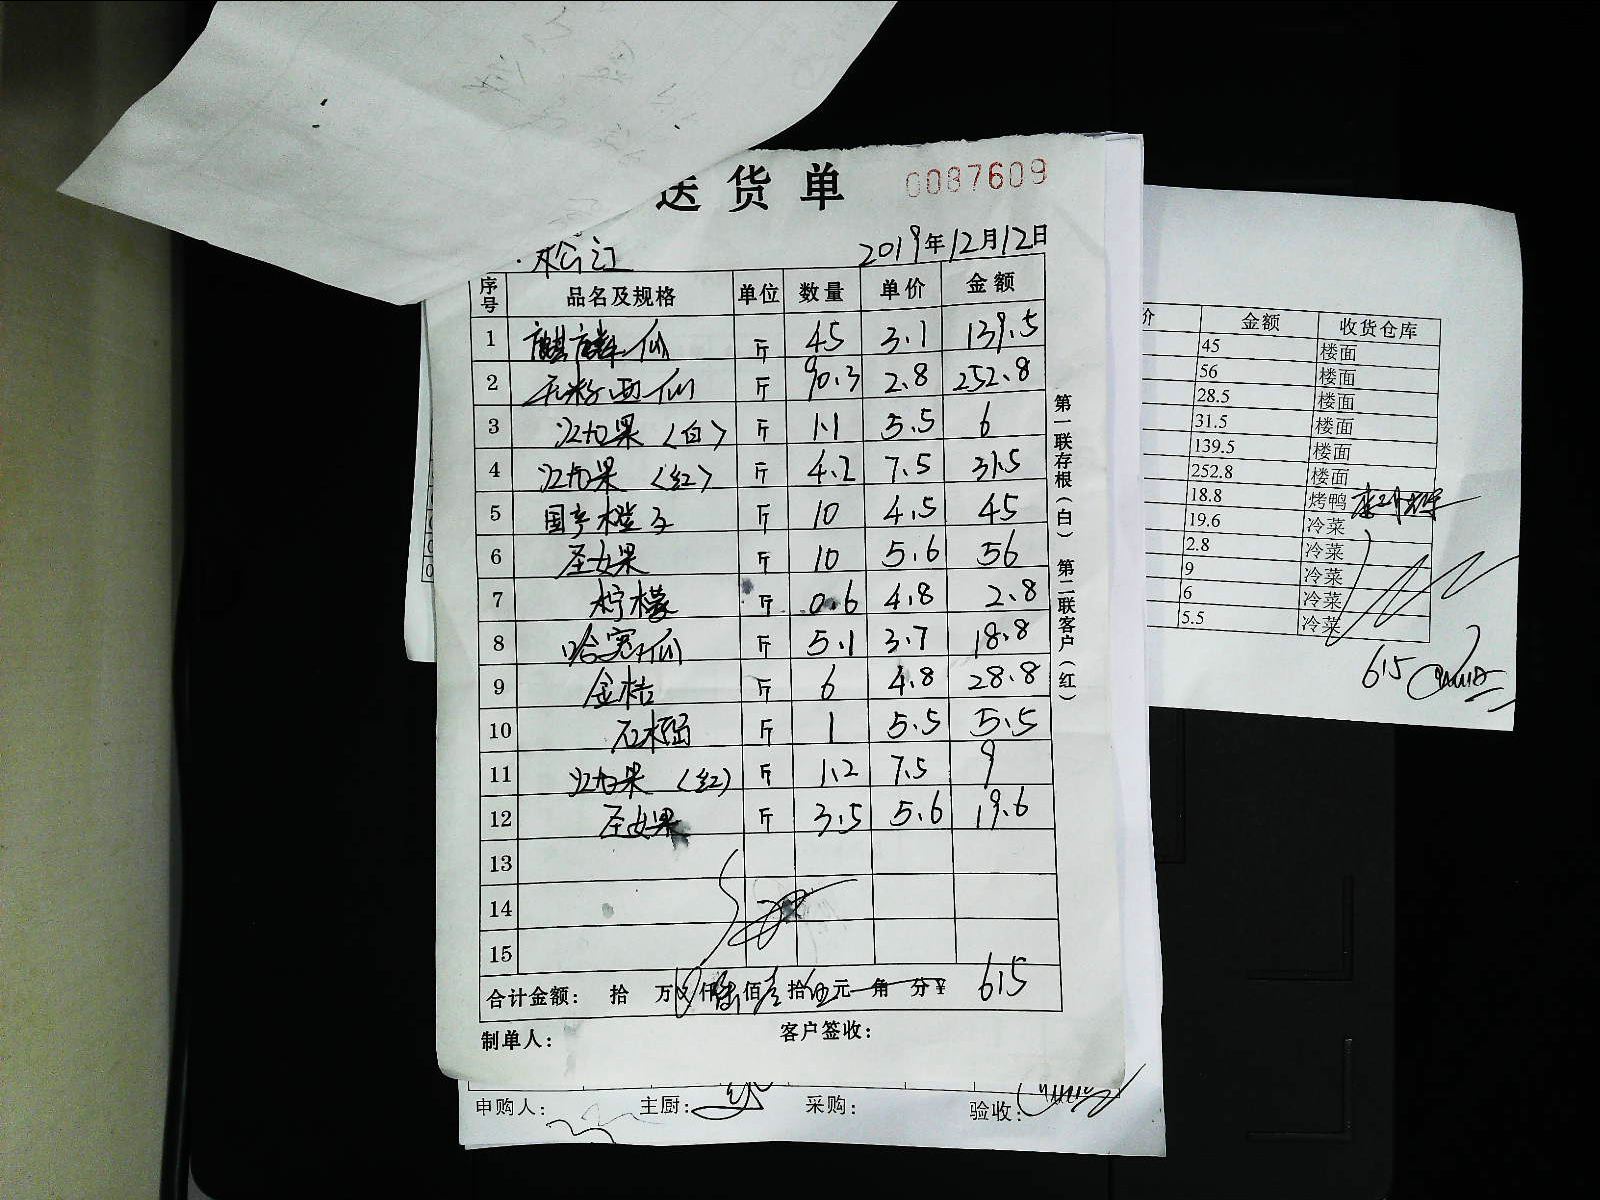 送货单 0087609
松江 2019年12月12日
序号 品名及规格 单位 数量 单价 金额
1 麒麟瓜 斤 45 3.1 139.5
2 无籽西瓜 斤 90.3 2.8 252.8
3 火龙果（白） 斤 1.1 5.5 6
4 火龙果（红） 斤 4.2 7.5 31.5
5 国产橙子 斤 10 4.5 45
6 圣女果 斤 10 5.6 56
7 柠檬 斤 0.6 4.8 2.8
8 哈密瓜 斤 5.1 3.7 18.8
9 金桔 斤 6 4.8 28.8
10 石榴 斤 1 5.5 5.5
11 火龙果（红） 斤 1.2 7.5 9
12 圣女果 斤 3.5 5.6 19.6
13
14
15
合计金额： 拾 万 仟 陆 佰 壹 拾 伍 元 角 分 ¥ 615
制单人： 客户签收：
第一联存根（白） 第二联客户（红）
申购人： 主厨： 采购： 验收：
价 金额 收货仓库
45 楼面
56 楼面
28.5 楼面
31.5 楼面
139.5 楼面
252.8 楼面
18.8 烤鸭
19.6 冷菜
2.8 冷菜
9 冷菜
6 冷菜
5.5 冷菜
615